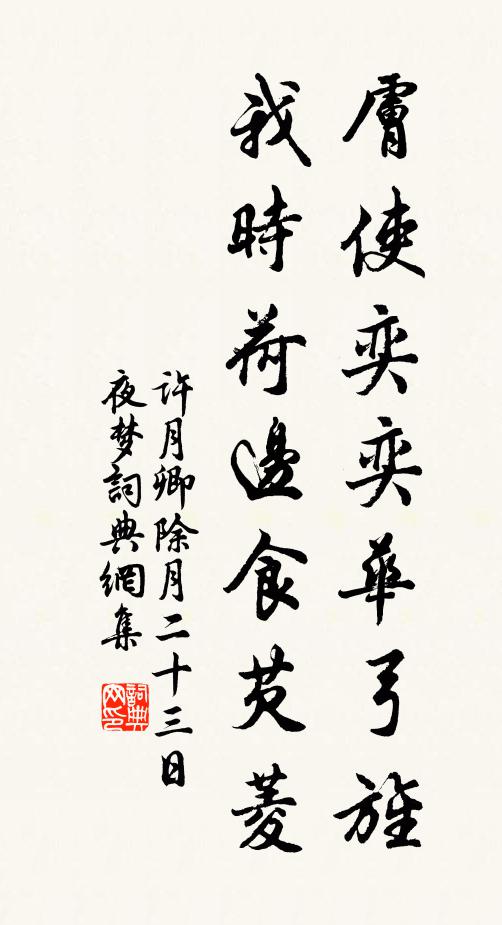 膚使奕奕華弓旌
我時荷邊食芡菱
許月卿除月二十三日
夜梦詞典網集
詞典网印